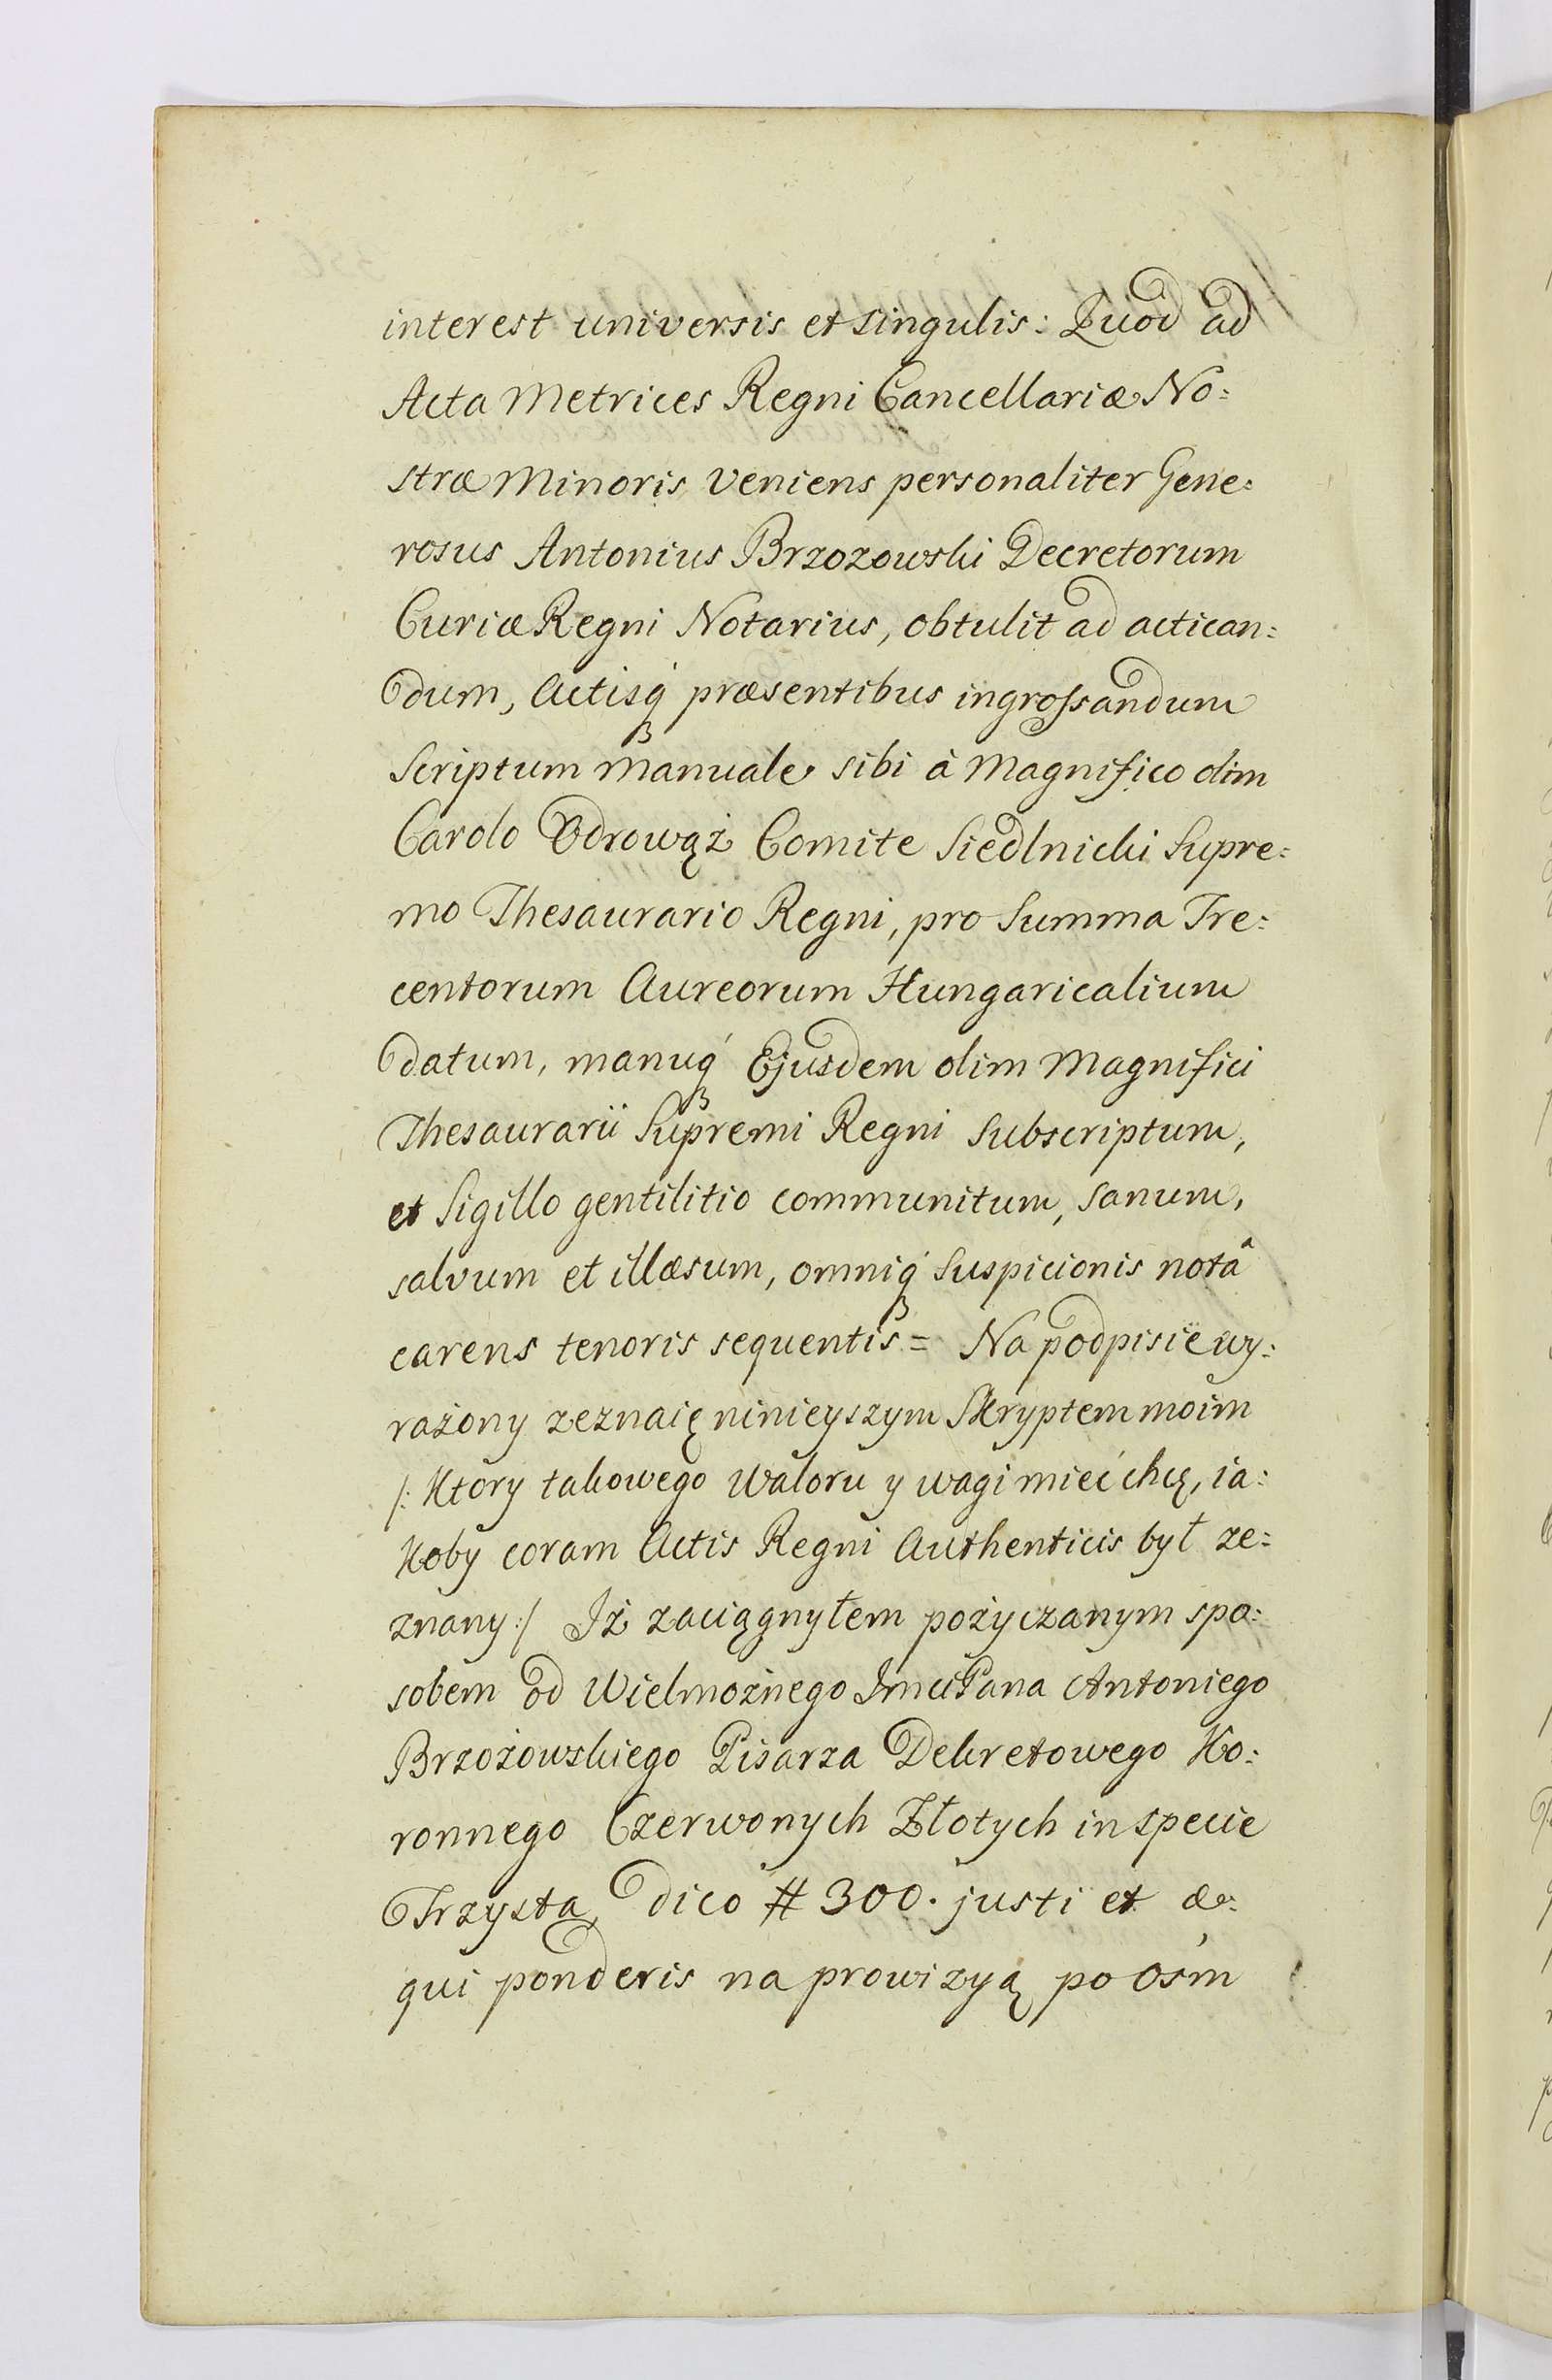 interest universis et singulis: Quod ad
Acta Metrices Regni Cancellariæ No:
stræ Minoris veniens personaliter Gene:
rosus Antonius Brzozowski Decretorum
Curiæ Regni Notarius, obtulit ad actican:
dum, Actisq́ præsentibus ingrossandum
Scriptum Manuale sibi à Magnifico olim
Carolo Odrowąż Comite Siedlnicki Supre:
mo Thesaurario Regni, pro Summa Tre:
centorum Aureorum Hungaricalium
datum, manuq́ Ejusdem olim Magnifici
Thesaurarii Supremi Regni Subscriptum,
et Sigillo gentilitio communitum, Sanum,
salvum et illæsum, omniq́ Suspicionis notâ
carens tenoris sequentis = Na podpisie wy:
rażony zeznaię ninieyszym Skryptem moim
/: Ktory takowego Waloru y wagi mieć chcę, ia:
koby coram Actis Regni Authenticis był ze:
znany :/ Iż zaciągnyłem pożyczanym spo:
sobem od Wielmożnego Jmci Pana Antoniego
Brzozowskiego Pisarza Dekretowego Ko:
ronnego Czerwonych Złotych in specie
Trzysta, dico # 300. justi et æ:
qui ponderis na prowizyą po ośm